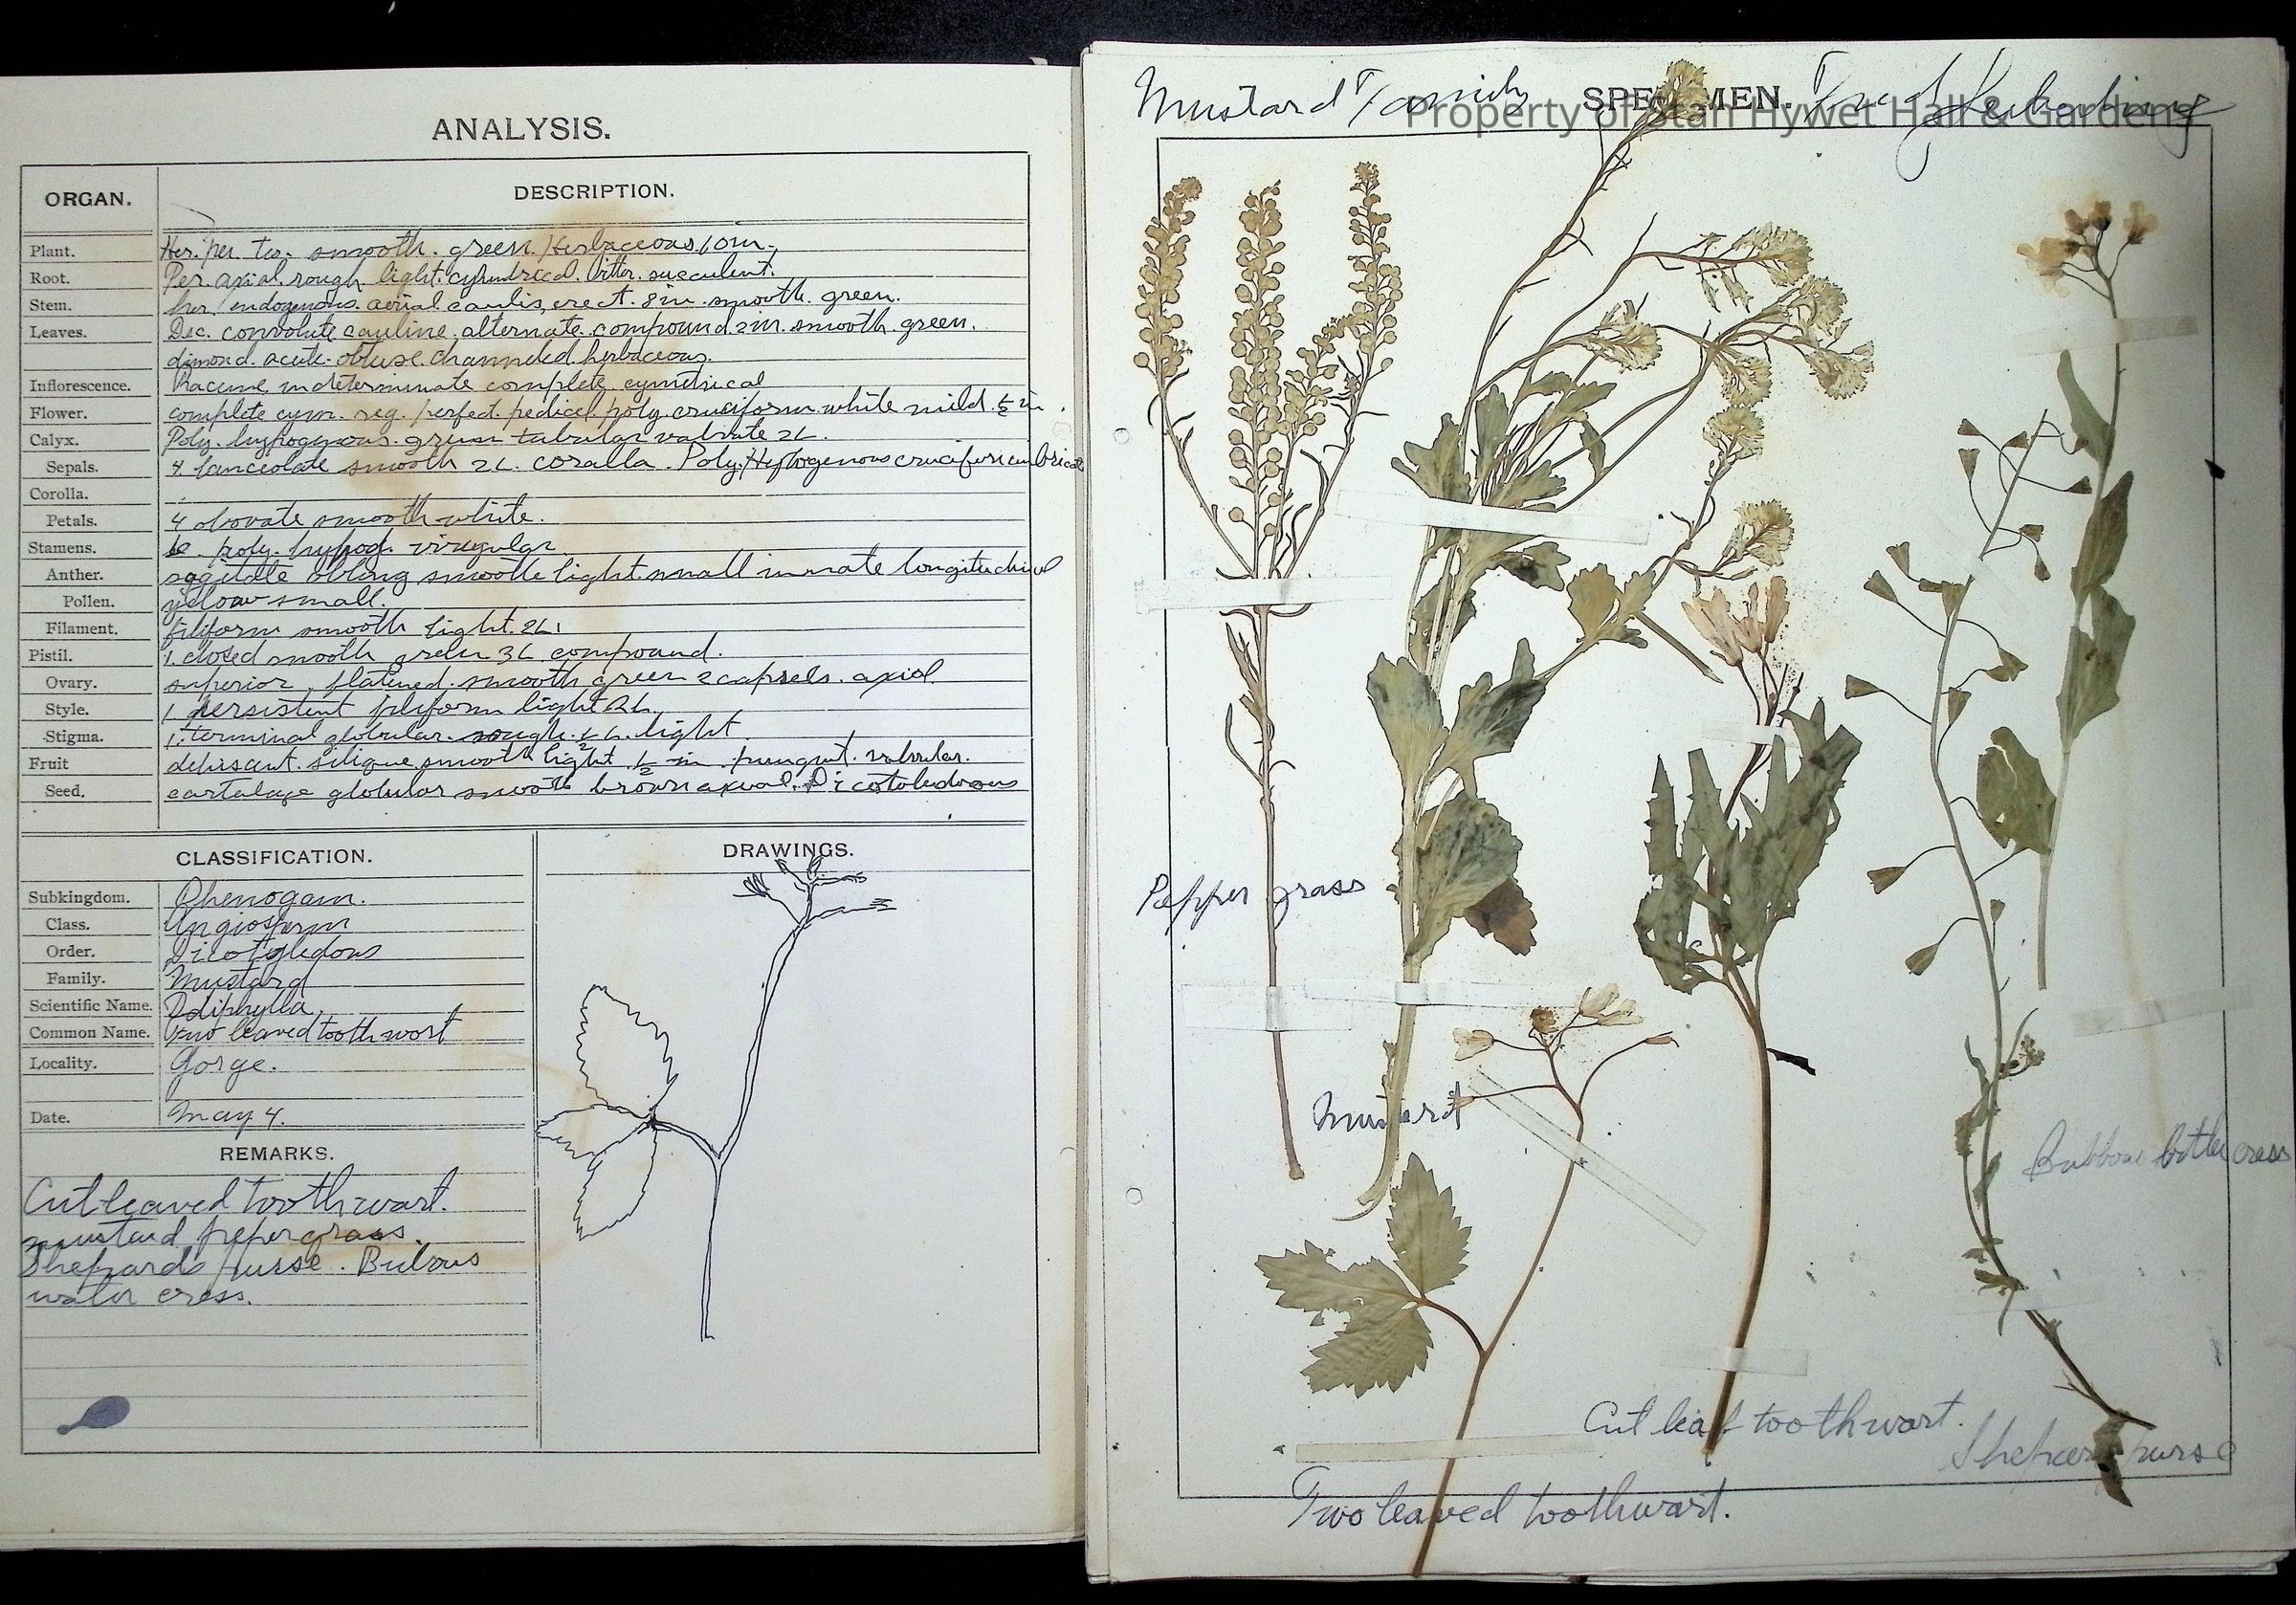 ANALYSIS.
ORGAN. DESCRIPTION.
Plant. Her. per. ter. smooth. green. Herbaceous. 10in.
Root. Per. axial. rough. light. cylindrical. bitter. succulent.
Stem. her. endogenous. aerial. caulis, erect. 8in. smooth. green.
Leaves. Dec. convolute cauline. alternate. compound. 2in. smooth. green.
dimond. acute. obtuse. channeled. herbaceous.
Inflorescence. Raceme indeterminate complete cymetrical
Flower. complete cym. reg. perfect. pedicel. poly. cruciform. white mild. ½ in.
Calyx. Poly. hypogenous. green tubular valvate 2L.
Sepals. 4 lanceolate smooth 2L. coralla. Poly. Hyphogenous cruciform imbricate
Corolla.
Petals. 4 obovate smooth white.
Stamens. 6. poly. hypog. irregular
Anther. sagitate oblong smooth light. small innate longitudinal
Pollen. yelow small.
Filament. filiform smooth light. 2L.
Pistil. 1. closed smooth green 3L compound.
Ovary. superior. flatened. smooth green 2 capsels. axial
Style. 1 persistent filiform light 2L
Stigma. 1. terminal globular. rough. ½ L. light
Fruit dehiscant. silique smooth light ½ in. pungent. valvular.
Seed. cartalage globular smooth brown axial. Dicotoledonous
CLASSIFICATION. DRAWINGS.
Subkingdom. Phenogam.
Class. Angiosperm
Order. Dicotyledons
Family. Mustard
Scientific Name. D diphylla
Common Name. Two leaved tooth wort
Locality. Gorge.
Date. May 4.
REMARKS.
Cut leaved toothwart.
mustard pepergrass.
Shepards purse. Bulous
water cress.
Mustard Family SPECIMEN. Fred
Property of Stan Hywet Hall & Gardens
Pepper grass
Mustard
Bubbous bitter cress
Cut leaf toothwart.
Shepards purse
Two leaved toothwart.